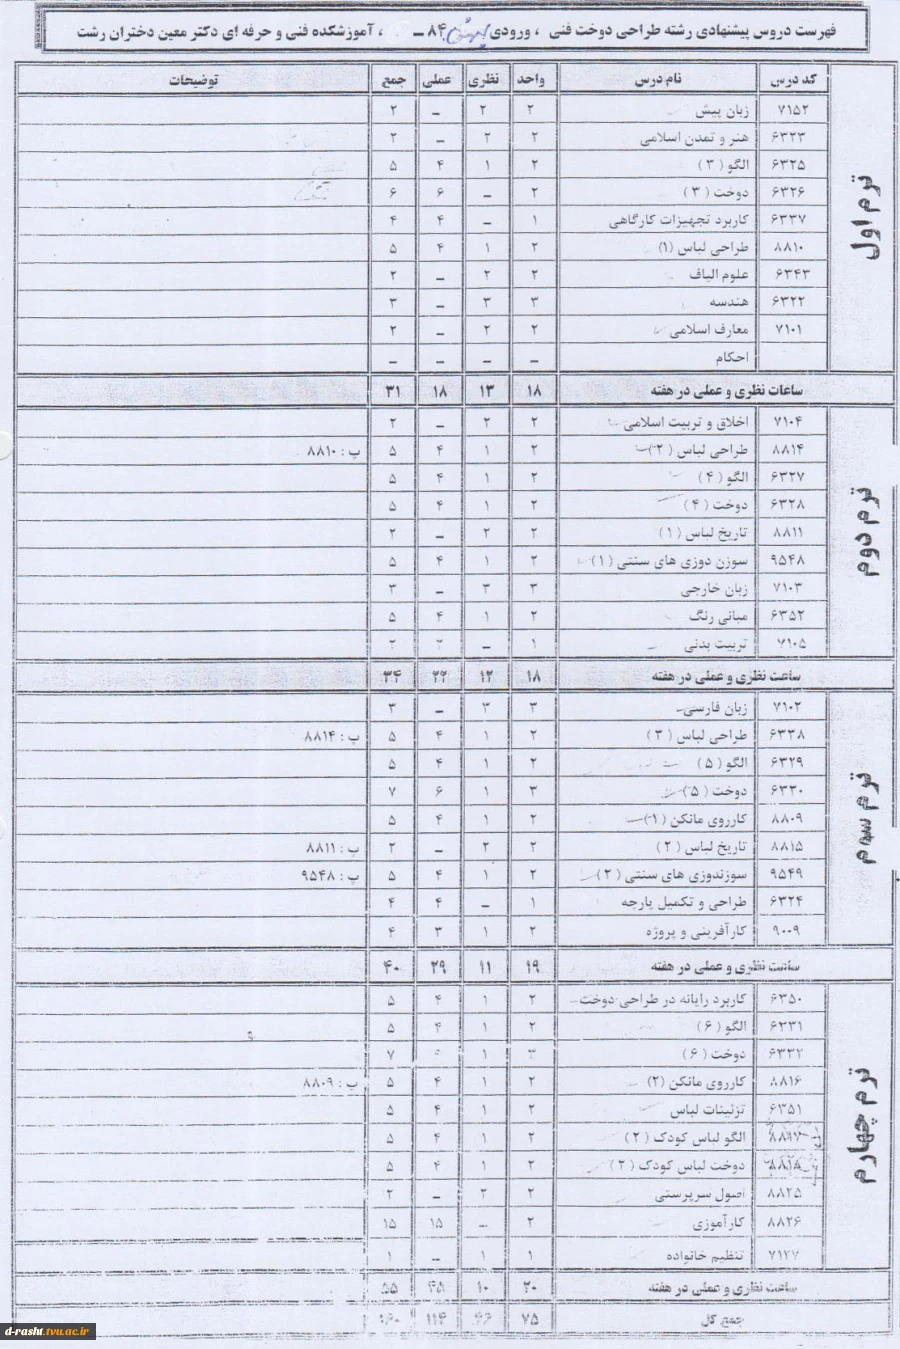 فهرست دروس پیشنهادی رشته طراحی دوخت فنی ، ورودی ۸۴ ـ ، آموزشکده فنی و حرفه ای دکتر معین دختران رشت
کد درس نام درس واحد نظری عملی جمع توضیحات
ترم اول
۷۱۵۲ زبان پیش ۲ ۲ ـ ۲
۶۳۲۳ هنر و تمدن اسلامی ۲ ۲ ـ ۲
۶۳۲۵ الگو ( ۳ ) ۲ ۱ ۴ ۵
۶۳۲۶ دوخت ( ۳ ) ۲ ـ ۶ ۶
۶۳۳۷ کاربرد تجهیزات کارگاهی ۱ ـ ۴ ۴
۸۸۱۰ طراحی لباس (۱) ۲ ۱ ۴ ۵
۶۳۴۳ علوم الیاف ۲ ۲ ـ ۲
۶۳۲۲ هندسه ۳ ۳ ـ ۳
۷۱۰۱ معارف اسلامی ۲ ۲ ـ ۲
احکام ـ ـ ـ ـ
ساعات نظری و عملی در هفته ۱۸ ۱۳ ۱۸ ۳۱
ترم دوم
۷۱۰۴ اخلاق و تربیت اسلامی ۲ ۲ ـ ۲
۸۸۱۴ طراحی لباس (۲) ۲ ۱ ۴ ۵ پ : ۸۸۱۰
۶۳۲۷ الگو ( ۴ ) ۲ ۱ ۴ ۵
۶۳۲۸ دوخت ( ۴ ) ۲ ۱ ۴ ۵
۸۸۱۱ تاریخ لباس ( ۱ ) ۲ ۲ ـ ۲
۹۵۴۸ سوزن دوزی های سنتی ( ۱ ) ۲ ۱ ۴ ۵
۷۱۰۳ زبان خارجی ۳ ۳ ـ ۳
۶۳۵۲ مبانی رنگ ۲ ۱ ۴ ۵
۷۱۰۵ تربیت بدنی ۱ ـ ۲ ۲
ساعت نظری و عملی در هفته ۱۸ ۱۲ ۲۲ ۳۴
ترم سوم
۷۱۰۲ زبان فارسی ۳ ۳ ـ ۳
۶۳۳۸ طراحی لباس ( ۳ ) ۲ ۱ ۴ ۵ پ : ۸۸۱۴
۶۳۲۹ الگو ( ۵ ) ۲ ۱ ۴ ۵
۶۳۳۰ دوخت ( ۵ ) ۳ ۱ ۶ ۷
۸۸۰۹ کارروی مانکن ( ۱ ) ۲ ۱ ۴ ۵
۸۸۱۵ تاریخ لباس ( ۲ ) ۲ ۲ ـ ۲ پ : ۸۸۱۱
۹۵۴۹ سوزندوزی های سنتی ( ۲ ) ۲ ۱ ۴ ۵ پ : ۹۵۴۸
۶۳۲۴ طراحی و تکمیل پارچه ۱ ـ ۴ ۴
۹۰۰۹ کارآفرینی و پروژه ۲ ۱ ۳ ۴
ساعت نظری و عملی در هفته ۱۹ ۱۱ ۲۹ ۴۰
ترم چهارم
۶۳۵۰ کاربرد رایانه در طراحی دوخت ۲ ۱ ۴ ۵
۶۳۳۱ الگو ( ۶ ) ۲ ۱ ۴ ۵
۶۳۳۲ دوخت ( ۶ ) ۳ ۱ ۷
۸۸۱۶ کارروی مانکن (۲) ۲ ۱ ۴ ۵ پ : ۸۸۰۹
۶۳۵۱ تزئینات لباس ۲ ۱ ۴ ۵
۸۸۱۷ الگو لباس کودک ( ۲ ) ۲ ۱ ۴ ۵
۸۸۱۸ دوخت لباس کودک ( ۲ ) ۲ ۱ ۴ ۵
۸۸۲۵ اصول سرپرستی ۲ ۲ ـ ۲
۸۸۲۶ کارآموزی ۲ ـ ۱۵ ۱۵
۷۱۲۷ تنظیم خانواده ۱ ۱ ـ ۱
ساعت نظری و عملی در هفته ۲۰ ۱۰ ۴۵ ۵۵
جمع کل ۷۵ ۴۶ ۱۱۴ ۱۶۰
d-rasht.tvu.ac.ir